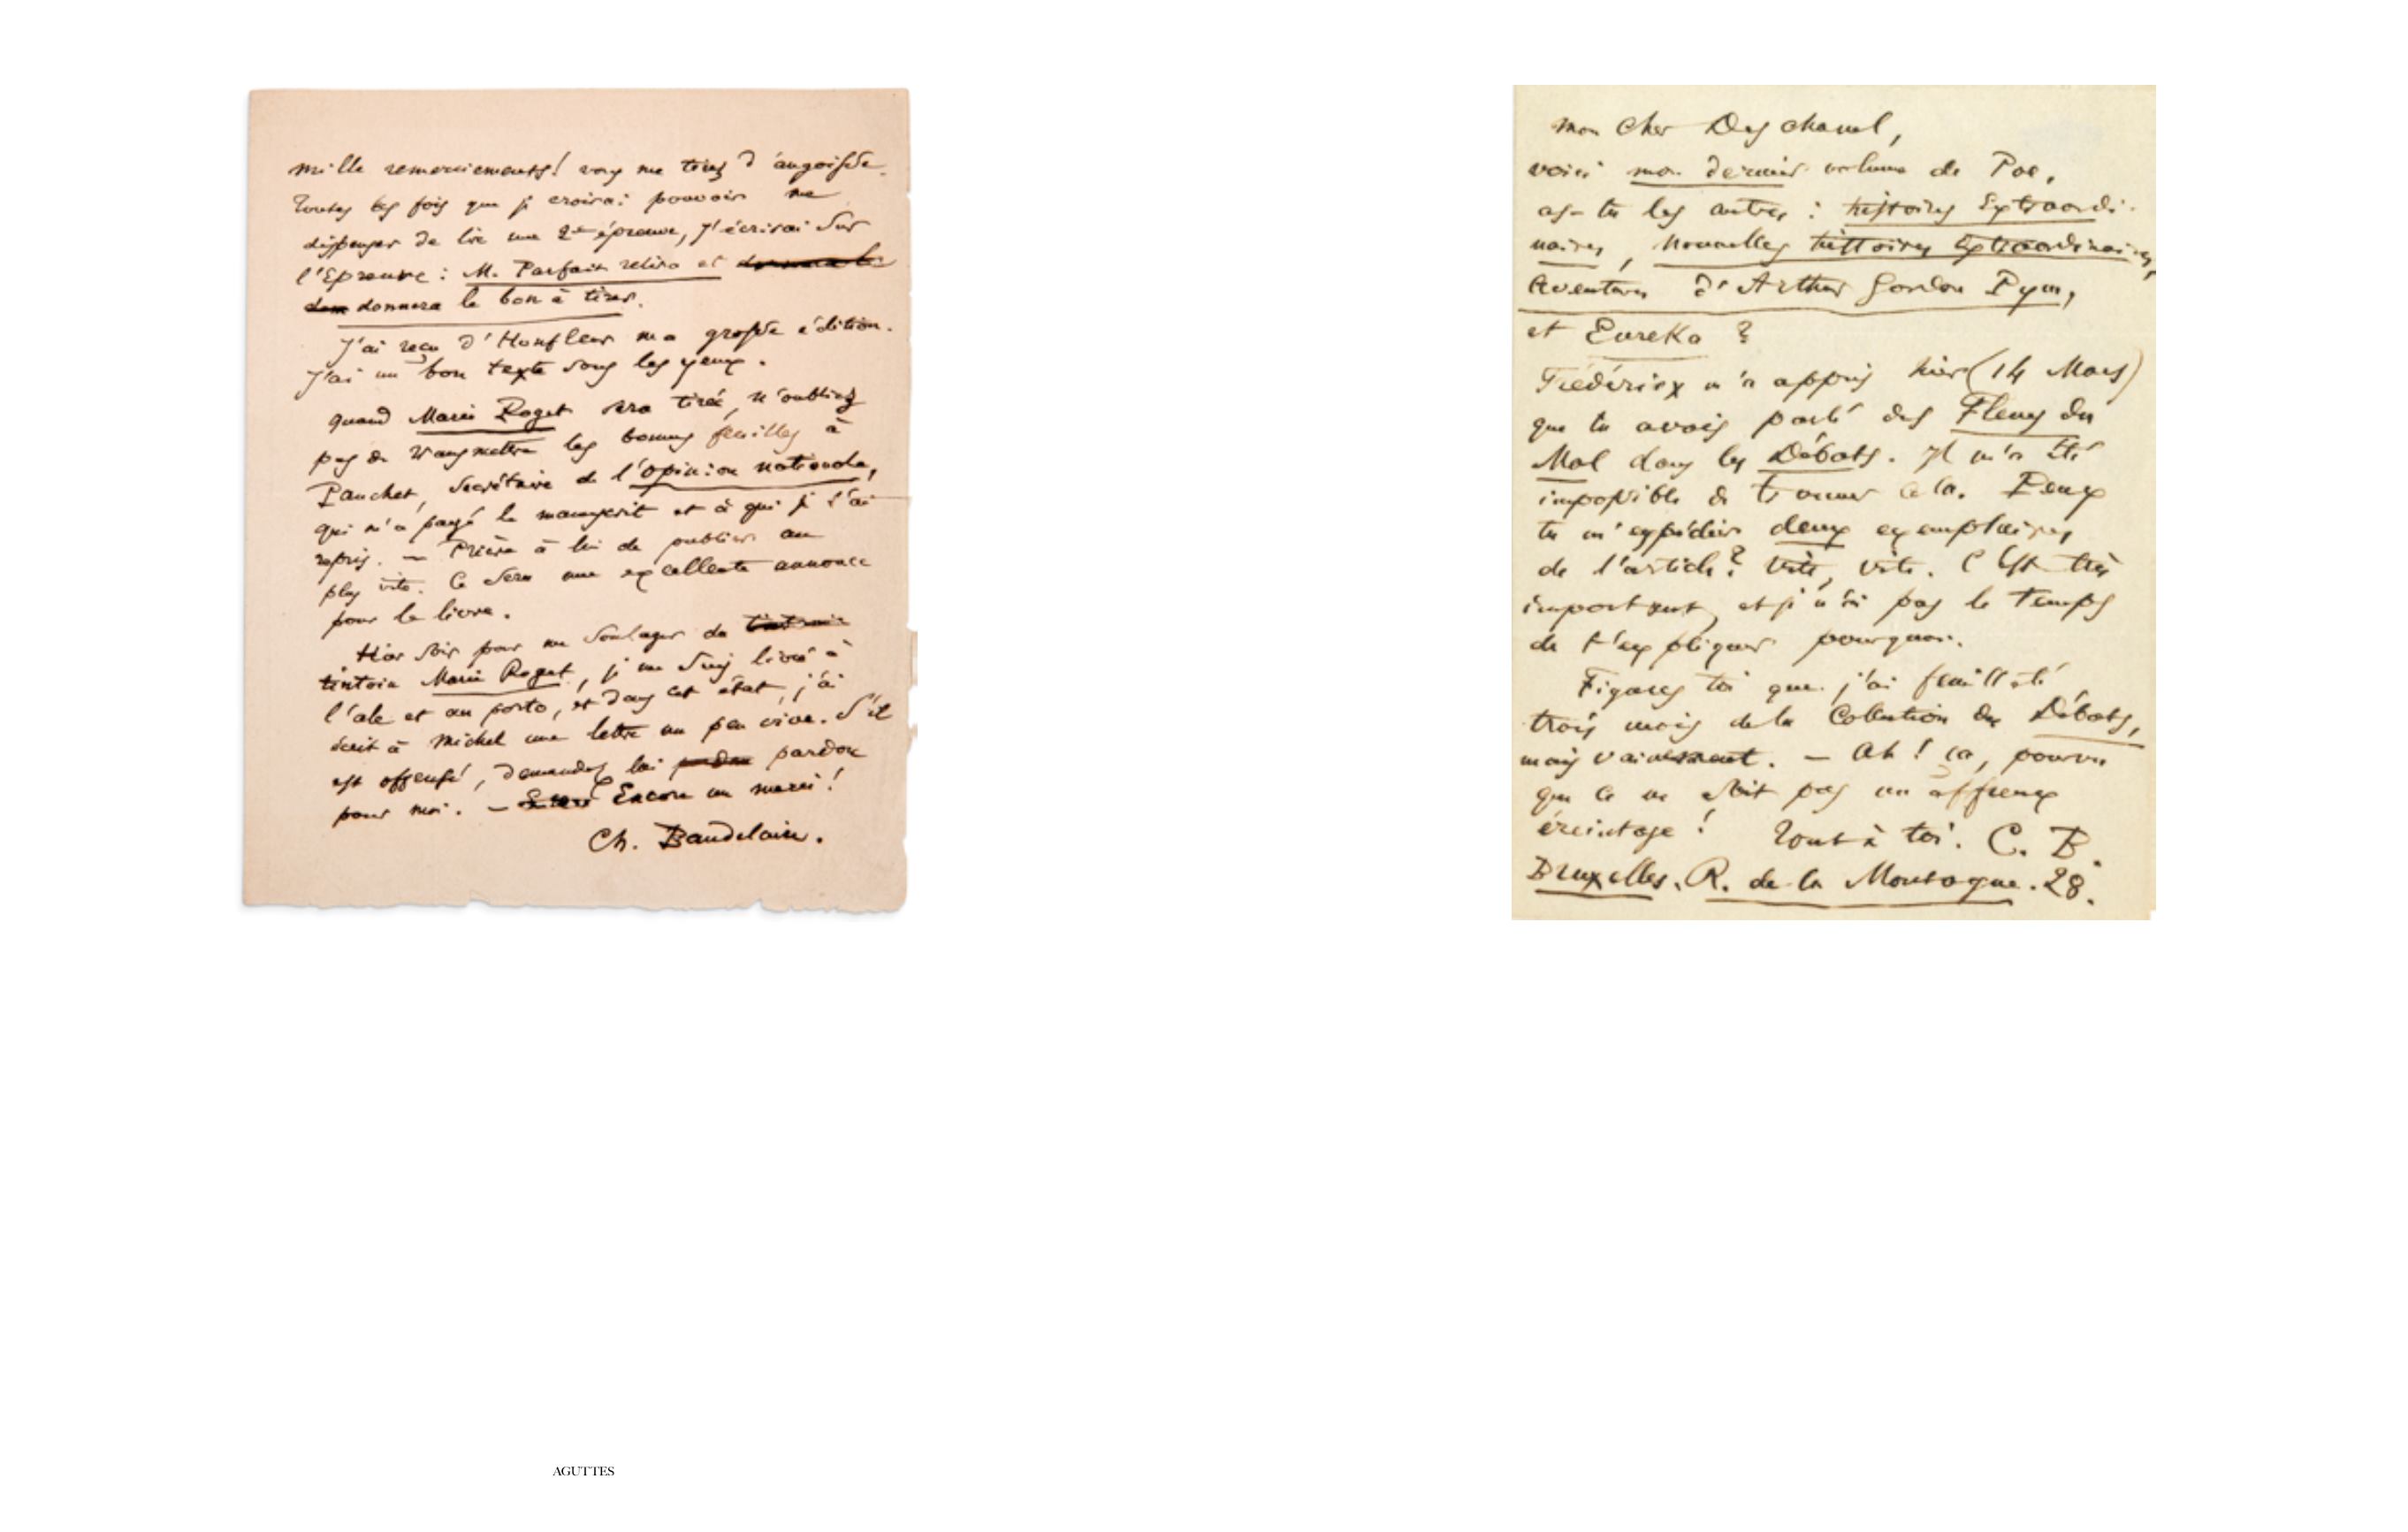 mille remerciements! vous me tirez d'angoisse.
Toutes les fois que je croirai pouvoir me
dispenser de lire une 2me épreuve, j'écrirai sur
l'Epreuve : M. Parfait relira et donnera le
don donnera le bon à tirer.
J'ai reçu d'Honfleur ma grosse édition.
J'ai un bon texte sous les yeux.
quand Marie Roget sera tirée, n'oubliez
pas de transmettre les bonnes feuilles à
Pauchet, secrétaire de l'opinion nationale,
qui m'a payé le manuscrit et à qui je l'ai
repris. — Prière à lui de publier au
plus vite. Ce sera une excellente annonce
pour le livre.
Hier soir pour me soulager du
tintoin Marie Roget, je me suis livré à
l'ale et au porto, et dans cet état, j'ai
écrit à Michel une lettre un peu vive. S'il
est offensé, demandez lui pardon
pour moi. — Encore un merci!
Ch. Baudelaire.
mon cher Deschanel,
voici mon dernier volume de Poe,
as-tu les autres : histoires Extraordi-
naires, Nouvelles histoires Extraordinaires,
Aventures d'Arthur Gordon Pym,
et Eureka ?
Frédérix m'a appris hier (14 Mars)
que tu avais parlé des Fleurs du
Mal dans les Débats. Il m'a été
impossible de trouver cela. Peux
tu m'expédier deux exemplaires
de l'article? Vite, vite. C'Est très
important, et je n'ai pas le temps
de t'expliquer pourquoi.
Figures toi que j'ai feuilleté
trois mois de la Collection des Débats,
mais vainement. — Ah! ça, pourvu
que ce ne soit pas un affreux
éreintage! Tout à toi. C. B.
Bruxelles. R. de la Montagne. 28.
AGUTTES